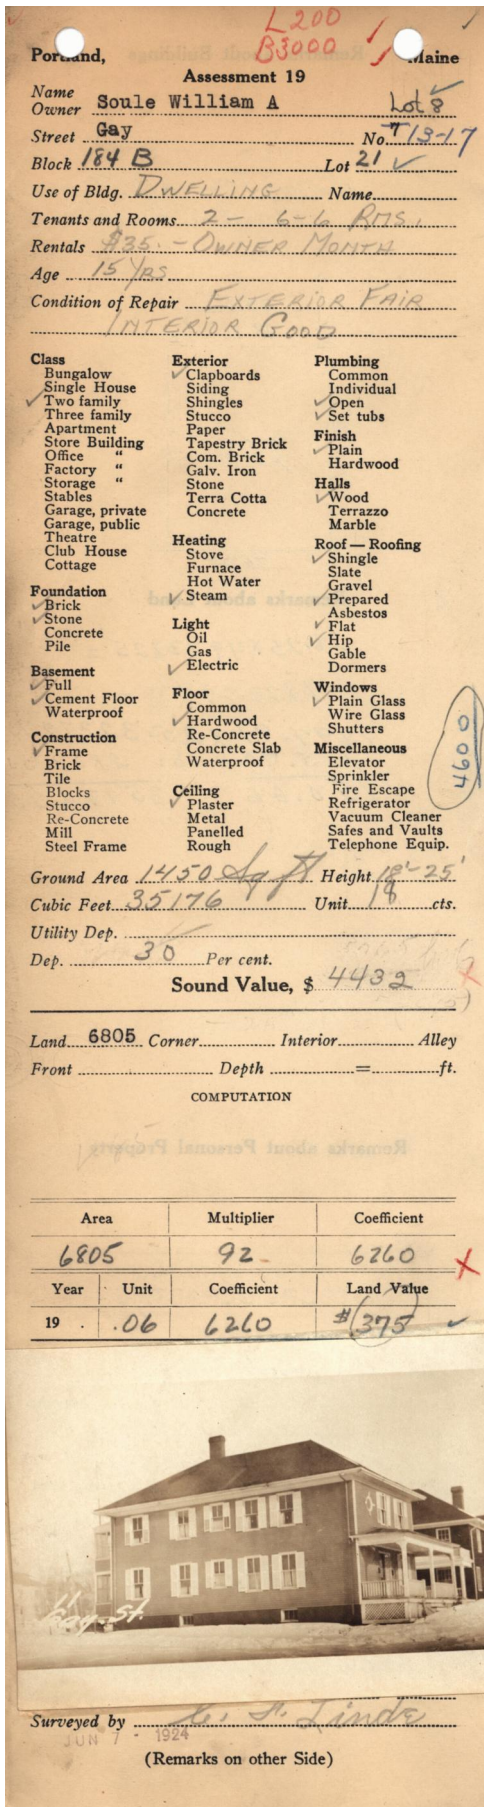 L 200
B 3000
Portland, Maine
Assessment 19
Name
Owner Soule William A Lot 8
Street Gay No 13-17
Block 184 B Lot 21
Use of Bldg. DWELLING Name
Tenants and Rooms 2 - 6-6 RMS.
Rentals $35.- OWNER MONTH
Age 15 YRS
Condition of Repair EXTERIOR FAIR
INTERIOR GOOD
Class
Bungalow
Single House
Two family
Three family
Apartment
Store Building
Office "
Factory "
Storage "
Stables
Garage, private
Garage, public
Theatre
Club House
Cottage
Foundation
Brick
Stone
Concrete
Pile
Basement
Full
Cement Floor
Waterproof
Construction
Frame
Brick
Tile
Blocks
Stucco
Re-Concrete
Mill
Steel Frame
Exterior
Clapboards
Siding
Shingles
Stucco
Paper
Tapestry Brick
Com. Brick
Galv. Iron
Stone
Terra Cotta
Concrete
Heating
Stove
Furnace
Hot Water
Steam
Light
Oil
Gas
Electric
Floor
Common
Hardwood
Re-Concrete
Concrete Slab
Waterproof
Ceiling
Plaster
Metal
Panelled
Rough
Plumbing
Common
Individual
Open
Set tubs
Finish
Plain
Hardwood
Halls
Wood
Terrazzo
Marble
Roof — Roofing
Shingle
Slate
Gravel
Prepared
Asbestos
Flat
Hip
Gable
Dormers
Windows
Plain Glass
Wire Glass
Shutters
Miscellaneous
Elevator
Sprinkler
Fire Escape
Refrigerator
Vacuum Cleaner
Safes and Vaults
Telephone Equip.
4600
Ground Area 1450 Sq ft Height 18'-25'
Cubic Feet 35176 Unit 18 cts.
Utility Dep.
Dep. 30 Per cent.
Sound Value, $ 4432
Land 6805 Corner Interior Alley
Front Depth = ft.
COMPUTATION
Area Multiplier Coefficient
6805 92 6260
Year Unit Coefficient Land Value
19 . .06 6260 $375
Gay St.
Surveyed by Linde
JUN 7 - 1924
(Remarks on other Side)